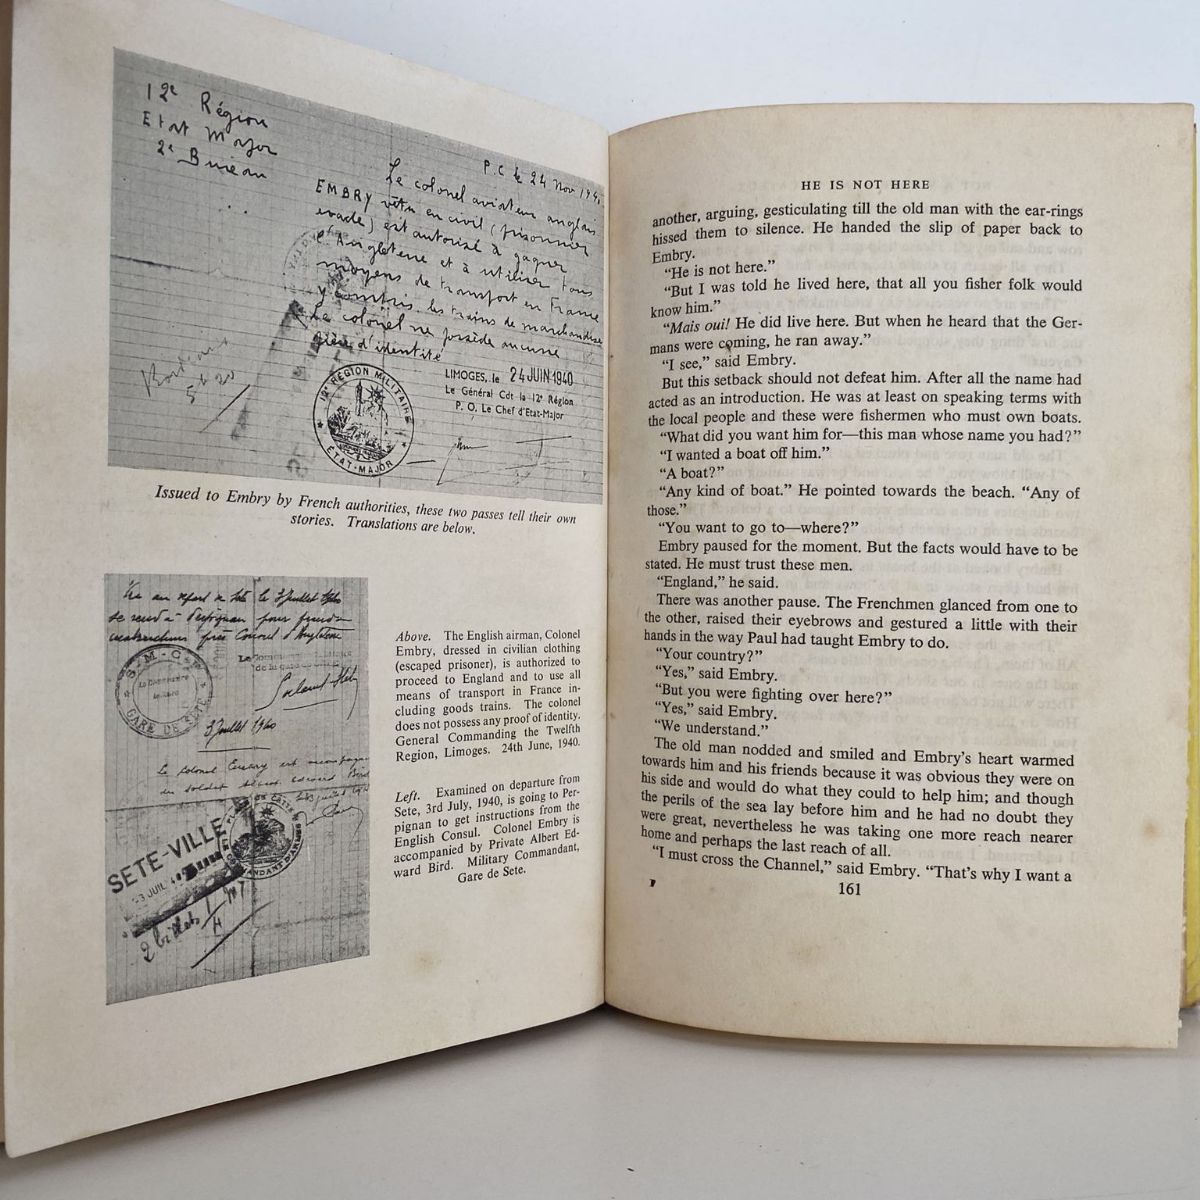 12e Région
Etat Major
2e Bureau
P.C le 24 Nov 194
Le colonel aviateur anglais
EMBRY vêtu en civil (prisonnier
evadé) est autorisé à gagner
l'Angleterre et à utiliser tous
moyens de transport en France
y compris les trains de marchandise
Le colonel ne possède aucune
pièce d'identité
Bordeaux
LIMOGES, le 24 JUIN 1940
Le Général Cdt la 12e Région
P. O. Le Chef d'Etat-Major
12e RÉGION MILITAIRE
ETAT-MAJOR
Issued to Embry by French authorities, these two passes tell their own
stories. Translations are below.
le 3 Juillet 1940
se rend à Perpignan pour prendre
instructions près Consul d'Angleterre
GARE DE SETE
3 Juillet 1940
Le Colonel Embry est accompagné
du soldat Albert Edward Bird
SETE-VILLE
3 JUIL
2 billets
Above. The English airman, Colonel
Embry, dressed in civilian clothing
(escaped prisoner), is authorized to
proceed to England and to use all
means of transport in France in-
cluding goods trains. The colonel
does not possess any proof of identity.
General Commanding the Twelfth
Region, Limoges. 24th June, 1940.
Left. Examined on departure from
Sete, 3rd July, 1940, is going to Per-
pignan to get instructions from the
English Consul. Colonel Embry is
accompanied by Private Albert Ed-
ward Bird. Military Commandant,
Gare de Sete.
HE IS NOT HERE
another, arguing, gesticulating till the old man with the ear-rings
hissed them to silence. He handed the slip of paper back to
Embry.
“He is not here.”
“But I was told he lived here, that all you fisher folk would
know him.”
“Mais oui! He did live here. But when he heard that the Ger-
mans were coming, he ran away.”
“I see,” said Embry.
But this setback should not defeat him. After all the name had
acted as an introduction. He was at least on speaking terms with
the local people and these were fishermen who must own boats.
“What did you want him for—this man whose name you had?”
“I wanted a boat off him.”
“A boat?”
“Any kind of boat.” He pointed towards the beach. “Any of
those.”
“You want to go to—where?”
Embry paused for the moment. But the facts would have to be
stated. He must trust these men.
“England,” he said.
There was another pause. The Frenchmen glanced from one to
the other, raised their eyebrows and gestured a little with their
hands in the way Paul had taught Embry to do.
“Your country?”
“Yes,” said Embry.
“But you were fighting over here?”
“Yes,” said Embry.
“We understand.”
The old man nodded and smiled and Embry’s heart warmed
towards him and his friends because it was obvious they were on
his side and would do what they could to help him; and though
the perils of the sea lay before him and he had no doubt they
were great, nevertheless he was taking one more reach nearer
home and perhaps the last reach of all.
“I must cross the Channel,” said Embry. “That’s why I want a
161